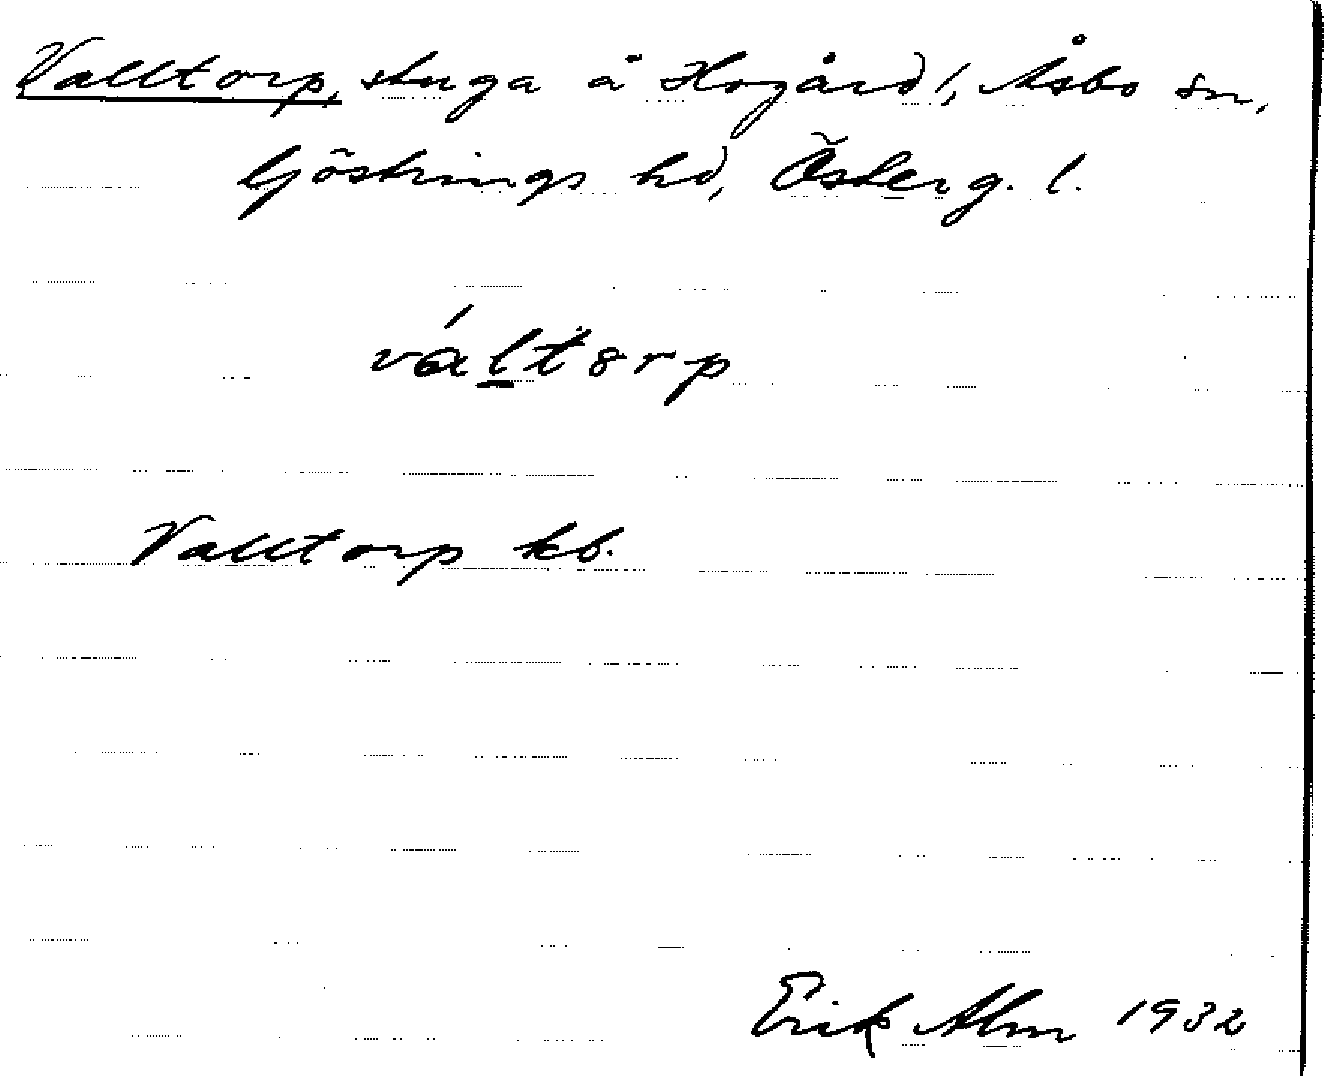 Valltorp, stuga å Hogård 1, Åsbo sn,
Göstrings hd, Österg. l.
váltorp
Valltorp kb.
Erik Alm 1932